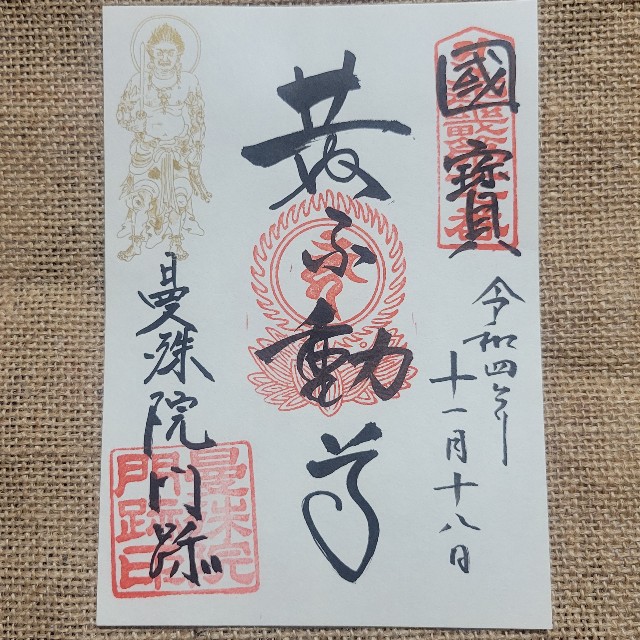 國寳
令和四年
十一月十八日
黄不動尊
曼殊院門跡
曼殊院
門跡印